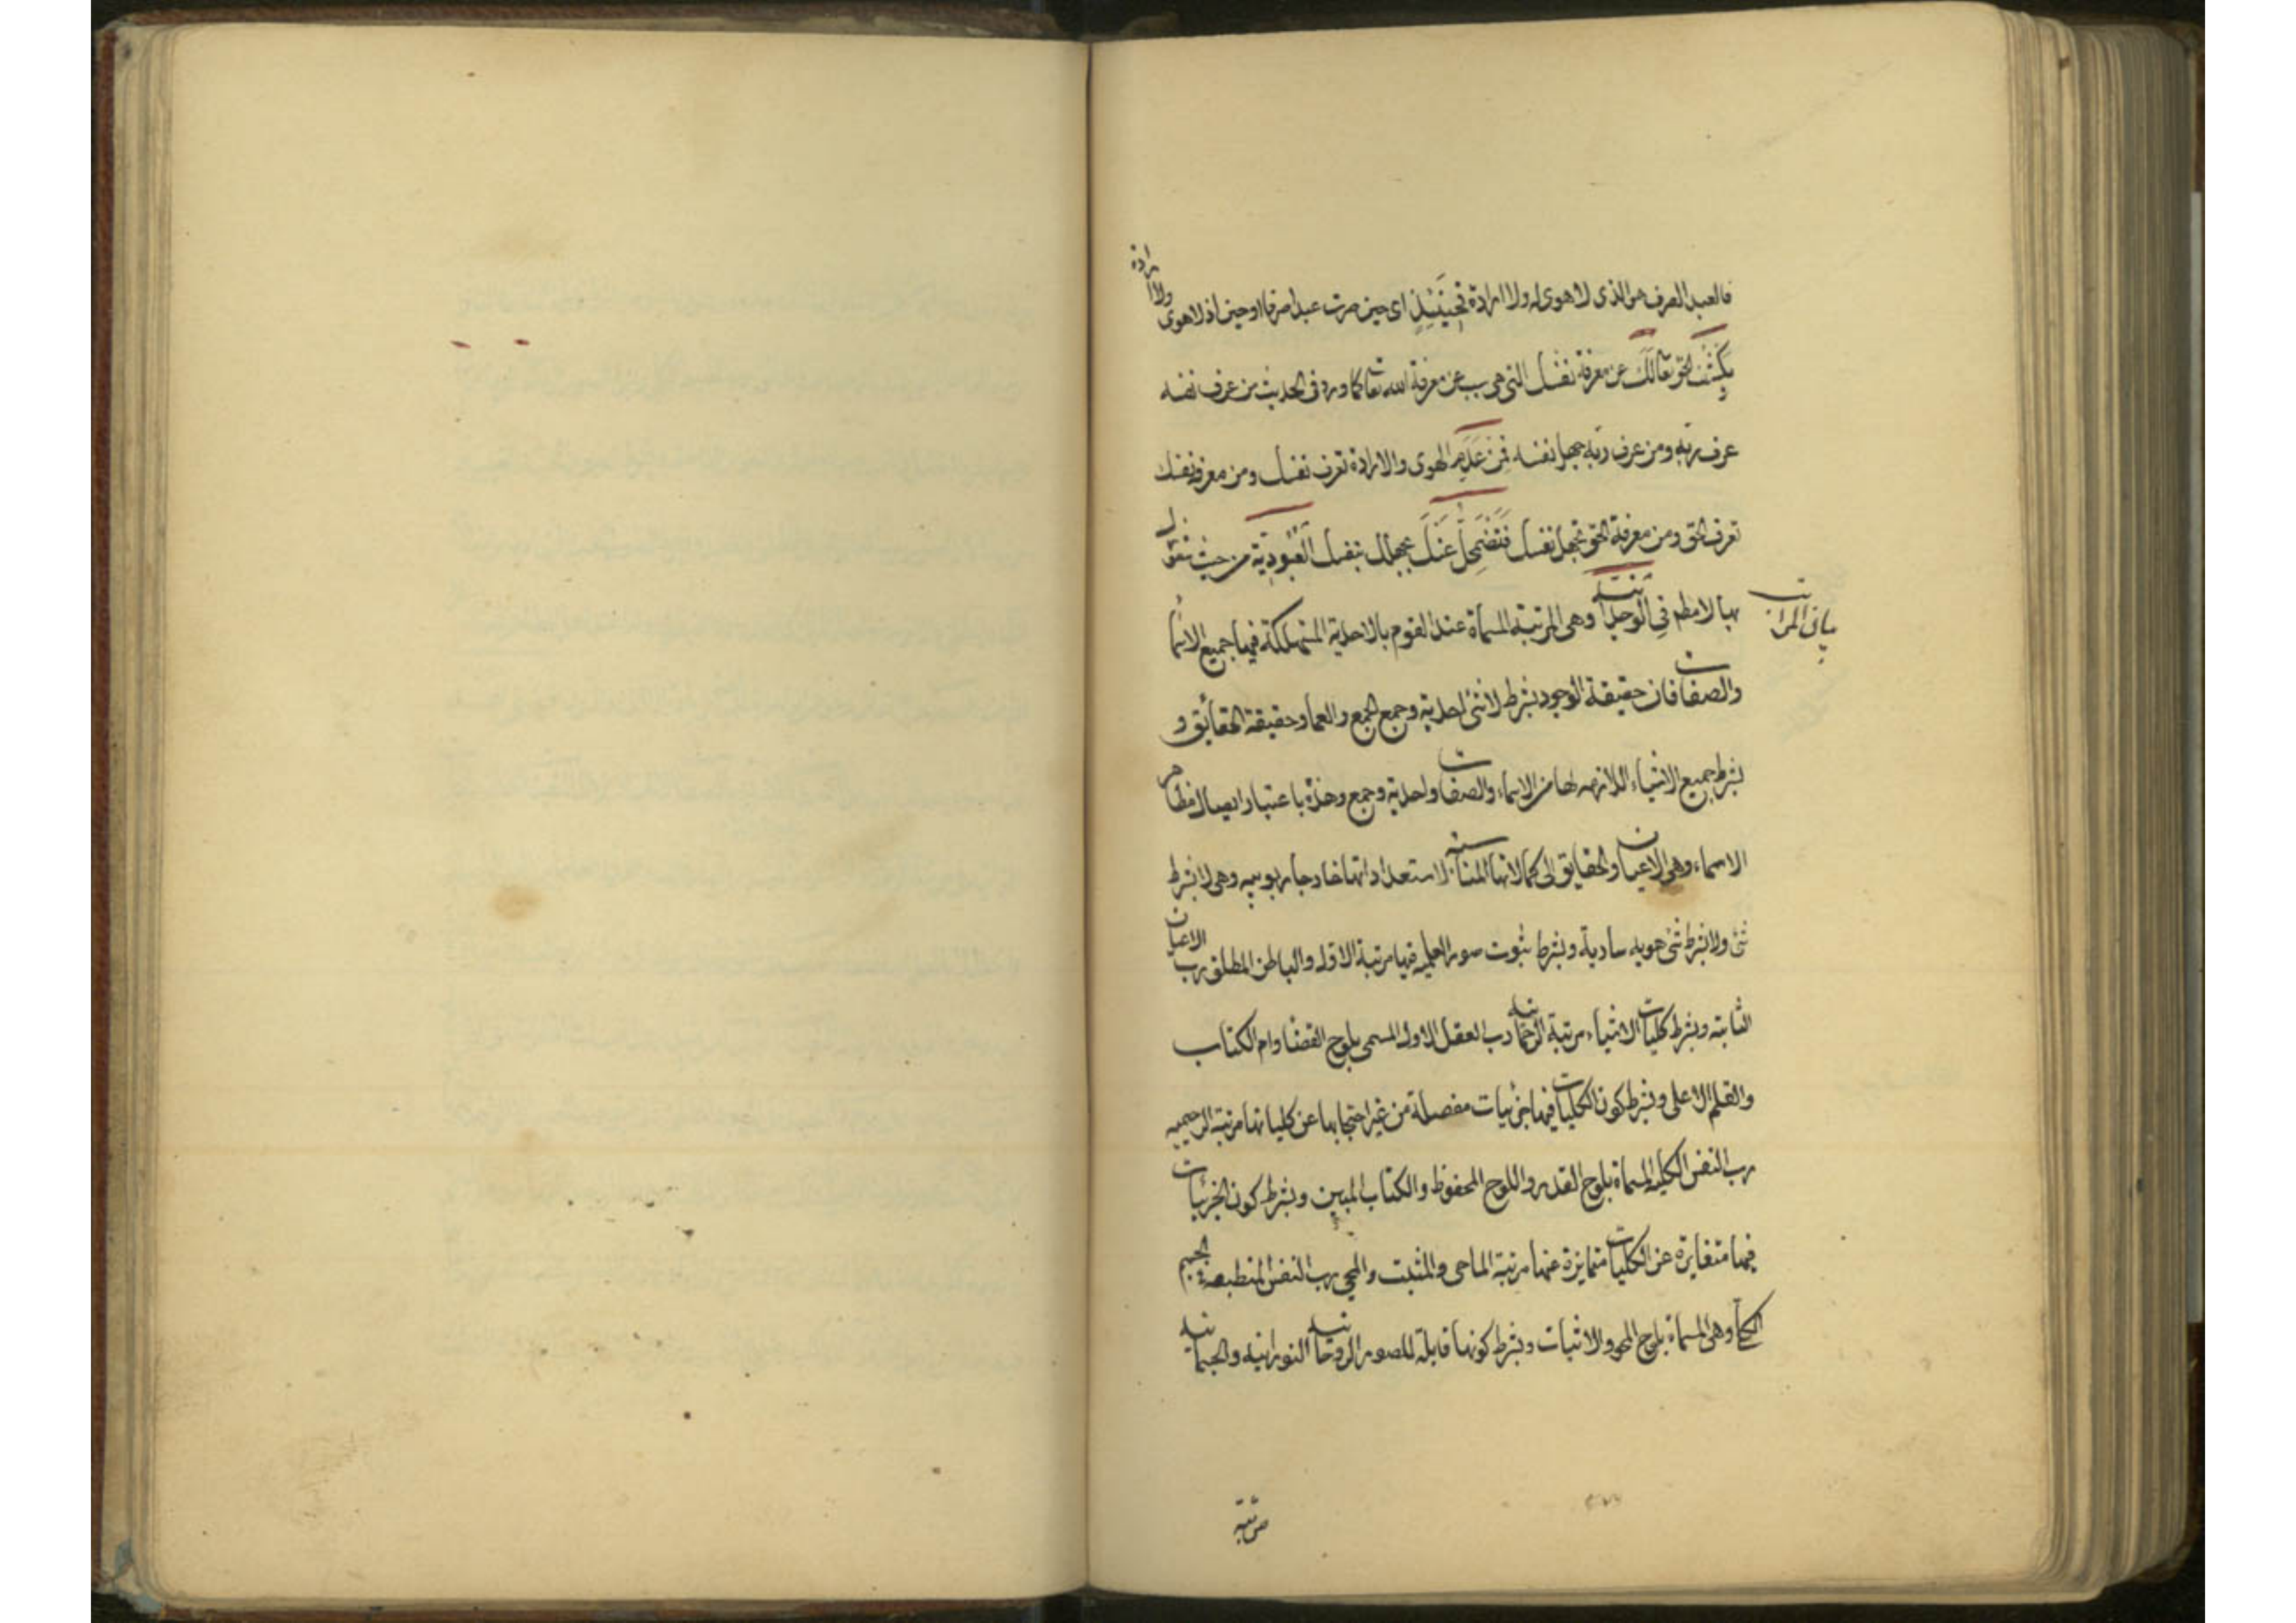 فالعبد الصرف هو الذى لا هوى له ولا ارادة فحينئذ اى حين صرت عبدا صرفا او حين اذ لا هوى ولا ارادة
يكشف الحق تعا لك عن معرفة نفسك التى هى سبب عن معرفة الله تعا كما ورد فى الحديث من عرف نفسه
عرف ربه ومن عرف ربه جهل نفسه فمن عدم الهوى والارادة تعرف نفسك ومن معرفة نفسك
تعرف الحق ومن معرفة الحق تجهل نفسك فتضمحل عنك بجهلك بنفسك العبودية من حيث
بها لا مطم فى الوحدانية وهى المرتبة المسماة عند القوم بالاحدية المستهلكة فيها جميع الاسما
بيان المراتب
والصفات فان حقيقة الوجود بشرط لا شئ احدية وجمع الجمع والعما وحقيقة الحقائق و
بشرط جميع الاشياء اللازمه لها من الاسماء والصفات واحدية وجمع وحدة باعتبار ايصال مظاهر
الاسماء وهى الاعيان والحقايق الى كمالاتها المناسبة لاستعداداتها خارجا ربوبيه وهى لا بشرط
شئ ولا بشرط شئ هويه سارية وبشرط ثبوت صور العلميه فيها مرتبة الاول والباطن المطلق رب الاعيان
الثابته وبشرط كليات الاشياء مرتبة الرحمانية رب العقل الاول المسمى بلوح القضا وام الكتاب
والقلم الاعلى وبشرط كون الكليات فيها جزئيات مفصلة من غير احتجابها عن كلياتها مرتبة الرحيميه
رب النفس الكليه المسماة بلوح القدر واللوح المحفوظ والكتاب المبين وبشرط كون الجزئيات
فيها متغايرة عن الكليات متمايزة عنها مرتبة الماحى والمثبت والمحى رب النفس المنطبعة فى الجسم
الكلى وهى المسماة بلوح المحو والاثبات وبشرط كونها قابلة للصور الروحانية النورانية والجسمانية
مرتبة